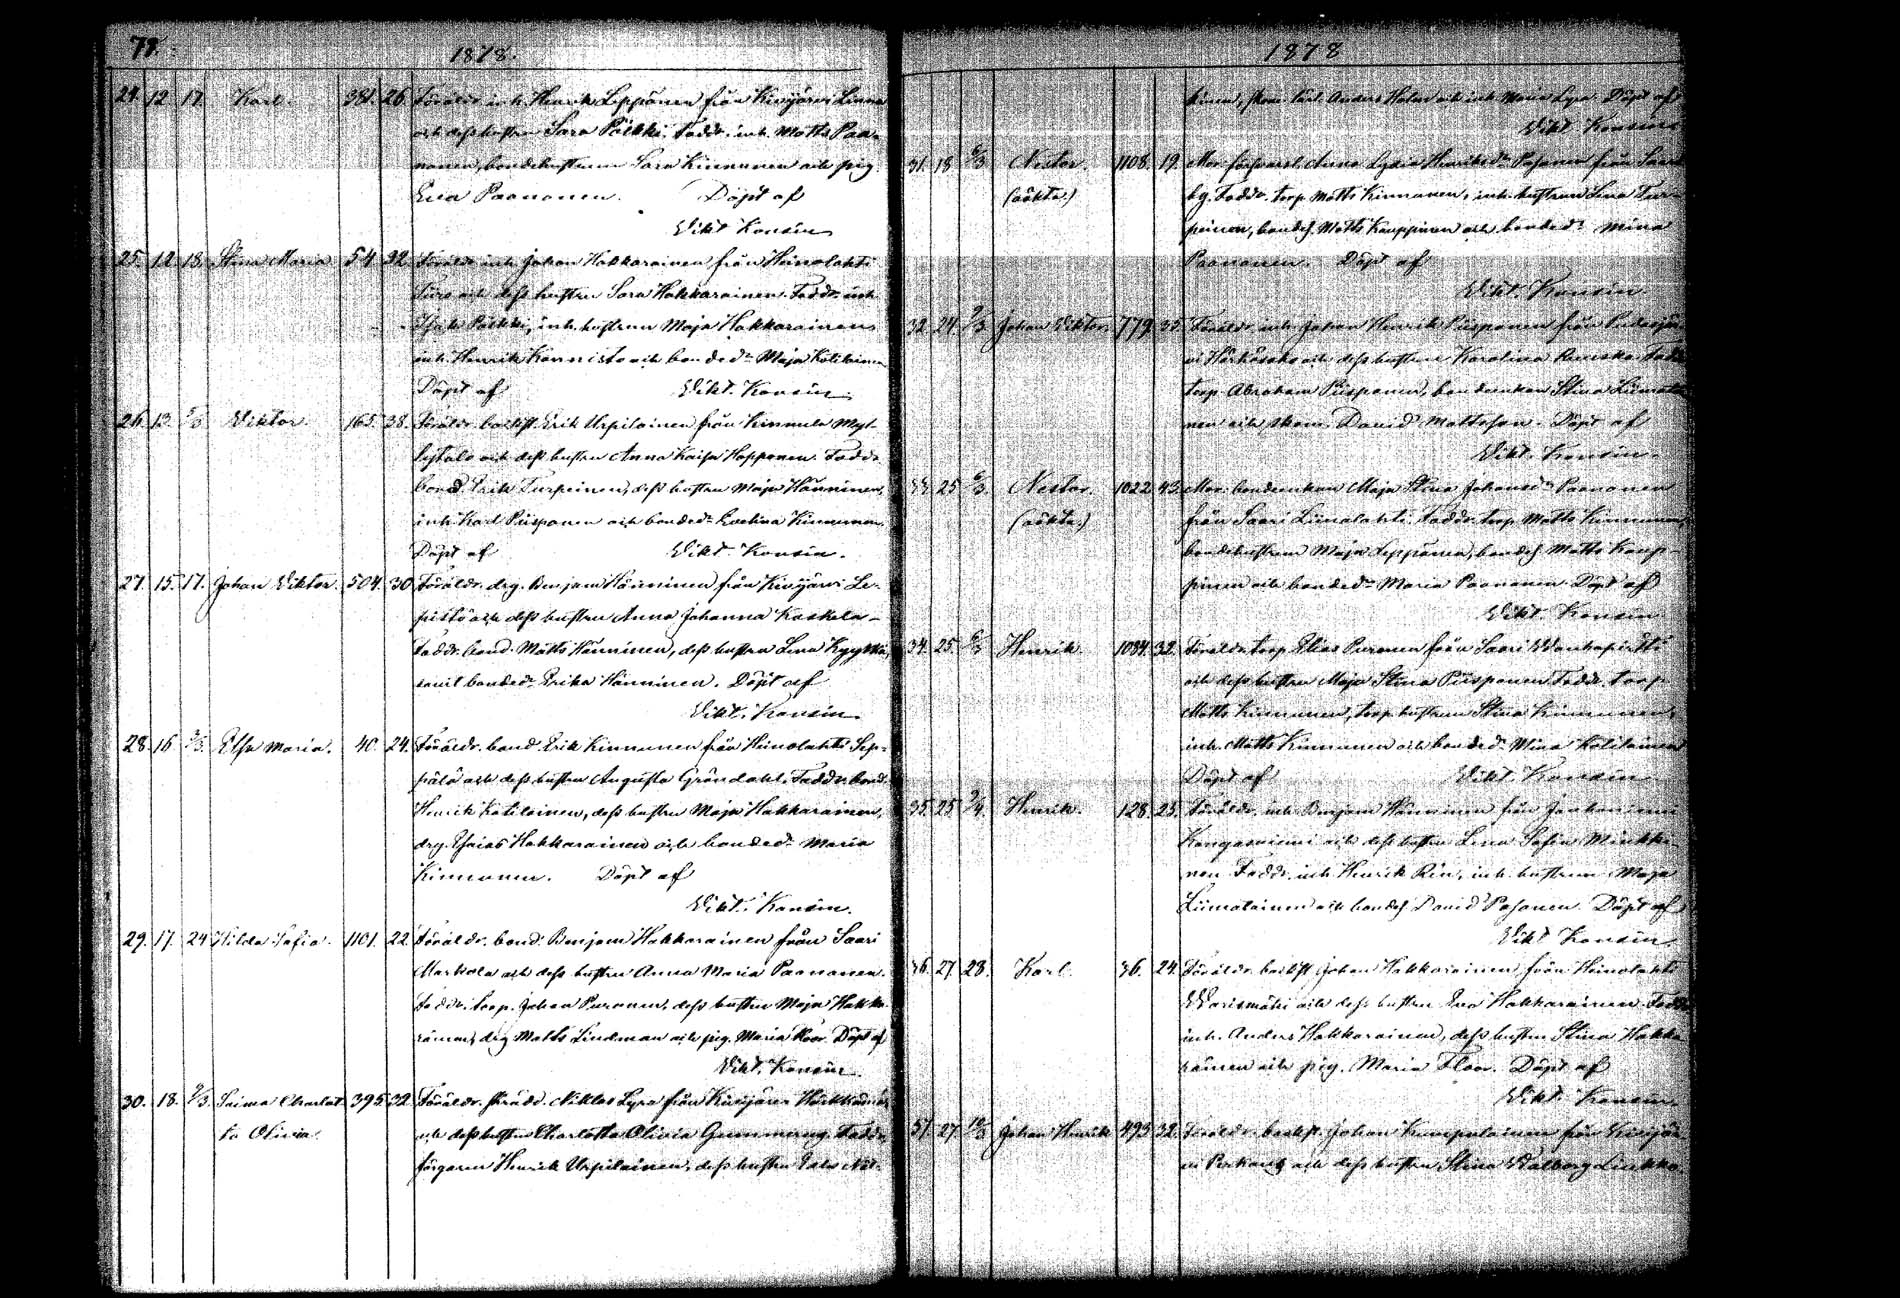 78.
1878.
24. 12. 17. Karl. 381. 26. Föräldr. inh. Henrik Leppänen från Kivijärvi Linna
och dess hustru Sara Pölkki. Faddr. inh. Matts Paa-
nanen, bondehustrun Sara Kinnunen och pig.
Eva Paananen. Döpt af
Vikt. Konsin
25. 12. 18. Stina Maria 54. 32. Föräldr. inh. Johan Hakkarainen från Heinolahti
och dess hustru Sara Hakkarainen. Faddr. inh.
Pölkki, inh. hustrun Maja Hakkarainen
inh. Henrik Kannisto och bonded:r Maja Kotilainen
Döpt af Vikt. Konsin
26. 13. 5/3 Viktor. 165. 38. Föräldr. backst. Erik Urpilainen från Kinnula Myl-
och dess hustru Anna Kaisa Hopponen. Faddr.
bond. Erik Turpeinen, dess hustru Maja Hänninen,
inh. Karl Piisponen och bonded:r Evelina Kinnunen.
Döpt af Vikt. Konsin.
27. 15. 17. Johan Viktor. 504. 30. Föräldr. drg. Benjam Hänninen från Kivijärvi Le-
pistö och dess hustru Anna Johanna Kaskela-
Faddr. bond. Matts Hänninen, dess hustru Lena
samt bonded:r Erika Hänninen. Döpt af
Vikt. Konsin
28. 16. 3/3. Elsa Maria. 40. 24. Föräldr. bond. Erik Kinnunen från Heinolahti Sep-
pälä och dess hustru Augusta Gröndahl. Faddr. bond.
Henrik Kotilainen, dess hustru Maja Hakkarainen,
drg. Esaias Hakkarainen och bonded:r Maria
Kinnunen. Döpt af
Vikt. Konsin.
29. 17. 24 Hilda Sofia. 1101. 22. Föräldr. bond. Benjam Hakkarainen från Saari
Markola och dess hustru Anna Maria Paananen.
Faddr. torp. Johan Puranen, dess hustru Maja Hakka-
rainen, drg. Matts Lindman och pig. Maria Floor. Döpt af
Vikt. Konsin
30. 18. 3/3 Saima Charlot- 395. 32. Föräldr. skrädd. Niklas Lyra från Kivijärvi
ta Olivia. och dess hustru Charlotta Olivia Gummerus. Faddr.
färgaren Henrik Urpilainen, dess hustru
1878
Anders Halar och inh. Maria Lyra. Döpt af
Vikt. Konsin
31. 18 6/3 Nestor. 1108. 19. Mor: Anna Lydia Henriksd:r Pasanen från Saari
(oäkta.) bg. Faddr. torp. Matts Kinnunen, inh. hustrun Lena Tur-
peinen, bondes. Matts Kauppinen och bonded:r Mina
Paananen. Döpt af
Vikt. Konsin.
32. 24. 3/3 Johan Viktor. 779. 35. Föräldr. inh. Johan Henrik Piisponen från Pudasjär-
vi och dess hustru Karolina Faddr.
torp. Abraham Piisponen, bondeenkan Stina Liimatai-
nen och David Mattsson. Döpt af
Vikt. Konsin.
33. 25 6/3. Nestor. 1022. 43. Mor: bondeenkan Maja Stina Johansd:r Paananen
(oäkta.) från Saari Liimalahti. Faddr. torp. Matts Kinnunen,
bondehustrun Maja Leppänen, bondes. Matts Kaup-
pinen och bonded:r Maria Paananen. Döpt af
Vikt. Konsin
34. 25. 6/3 Henrik. 1084. 32. Föräldr. torp. Elias Puranen från Saari Wanhapirtti
och dess hustru Maja Stina Piisponen. Faddr. torp.
Matts Kinnunen, torp. hustrun Stina Kinnunen,
inh. Matts Kinnunen och bonded:r Mina Kotilainen
Döpt af Vikt. Konsin
35. 25 7/4. Henrik. 128. 25. Föräldr. inh. Benjam Hänninen från Jonkuniemi
Kangasniemi och dess hustru Lena Sofia Minkki-
nen Faddr. inh. Henrik inh. hustrun Maja
Liimatainen och bondes. David Pasanen. Döpt af
Vikt. Konsin
36. 27. 28. Karl. 36. 24. Föräldr. backst. Johan Hakkarainen från Heinolahti
Warismäki och dess hustru Eva Hakkarainen. Faddr.
inh. Anders Hakkarainen, dess hustru Stina Hakka-
rainen och pig. Maria Floor. Döpt af
Vikt. Konsin.
37. 27. 10/3 Johan Henrik 493. 32. Föräldr. backst. Johan Kumpulainen från Kivijär-
vi och dess hustru Stina Walborg